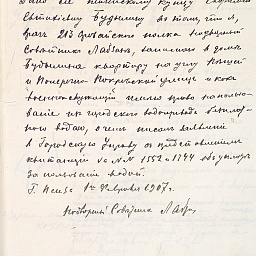 Дано сие пензенскому купцу Андрею
Евтихиеву Будылину в том, что я,
врач 213 Оровайского полка надворный
Советник Лабзин, занимаю в доме
Будылина квартиру на углу Нижней
и Поперечно-Покровской улице и как
военнослужащий имею право на пользо-
вание из городского водопровода бесплат-
ною водою, о чем писал заявление
в Городскую Управу с представлением
квитанций за №№ 1552 и 1744 об уплате
за пользование водой.
Г. Пенза 1го Февраля 1907 г.
Надворный Советник